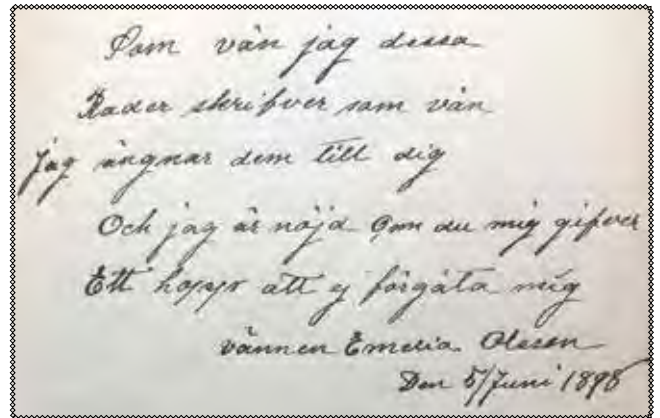 Som vän jag dessa
Rader skrifver som vän
jag ängnar dem till dig
Och jag är nöjd Om du mig gifver
Ett hopp att ej förgäta mig
vännen Emelia Olsson
Den 5/Juni 1898